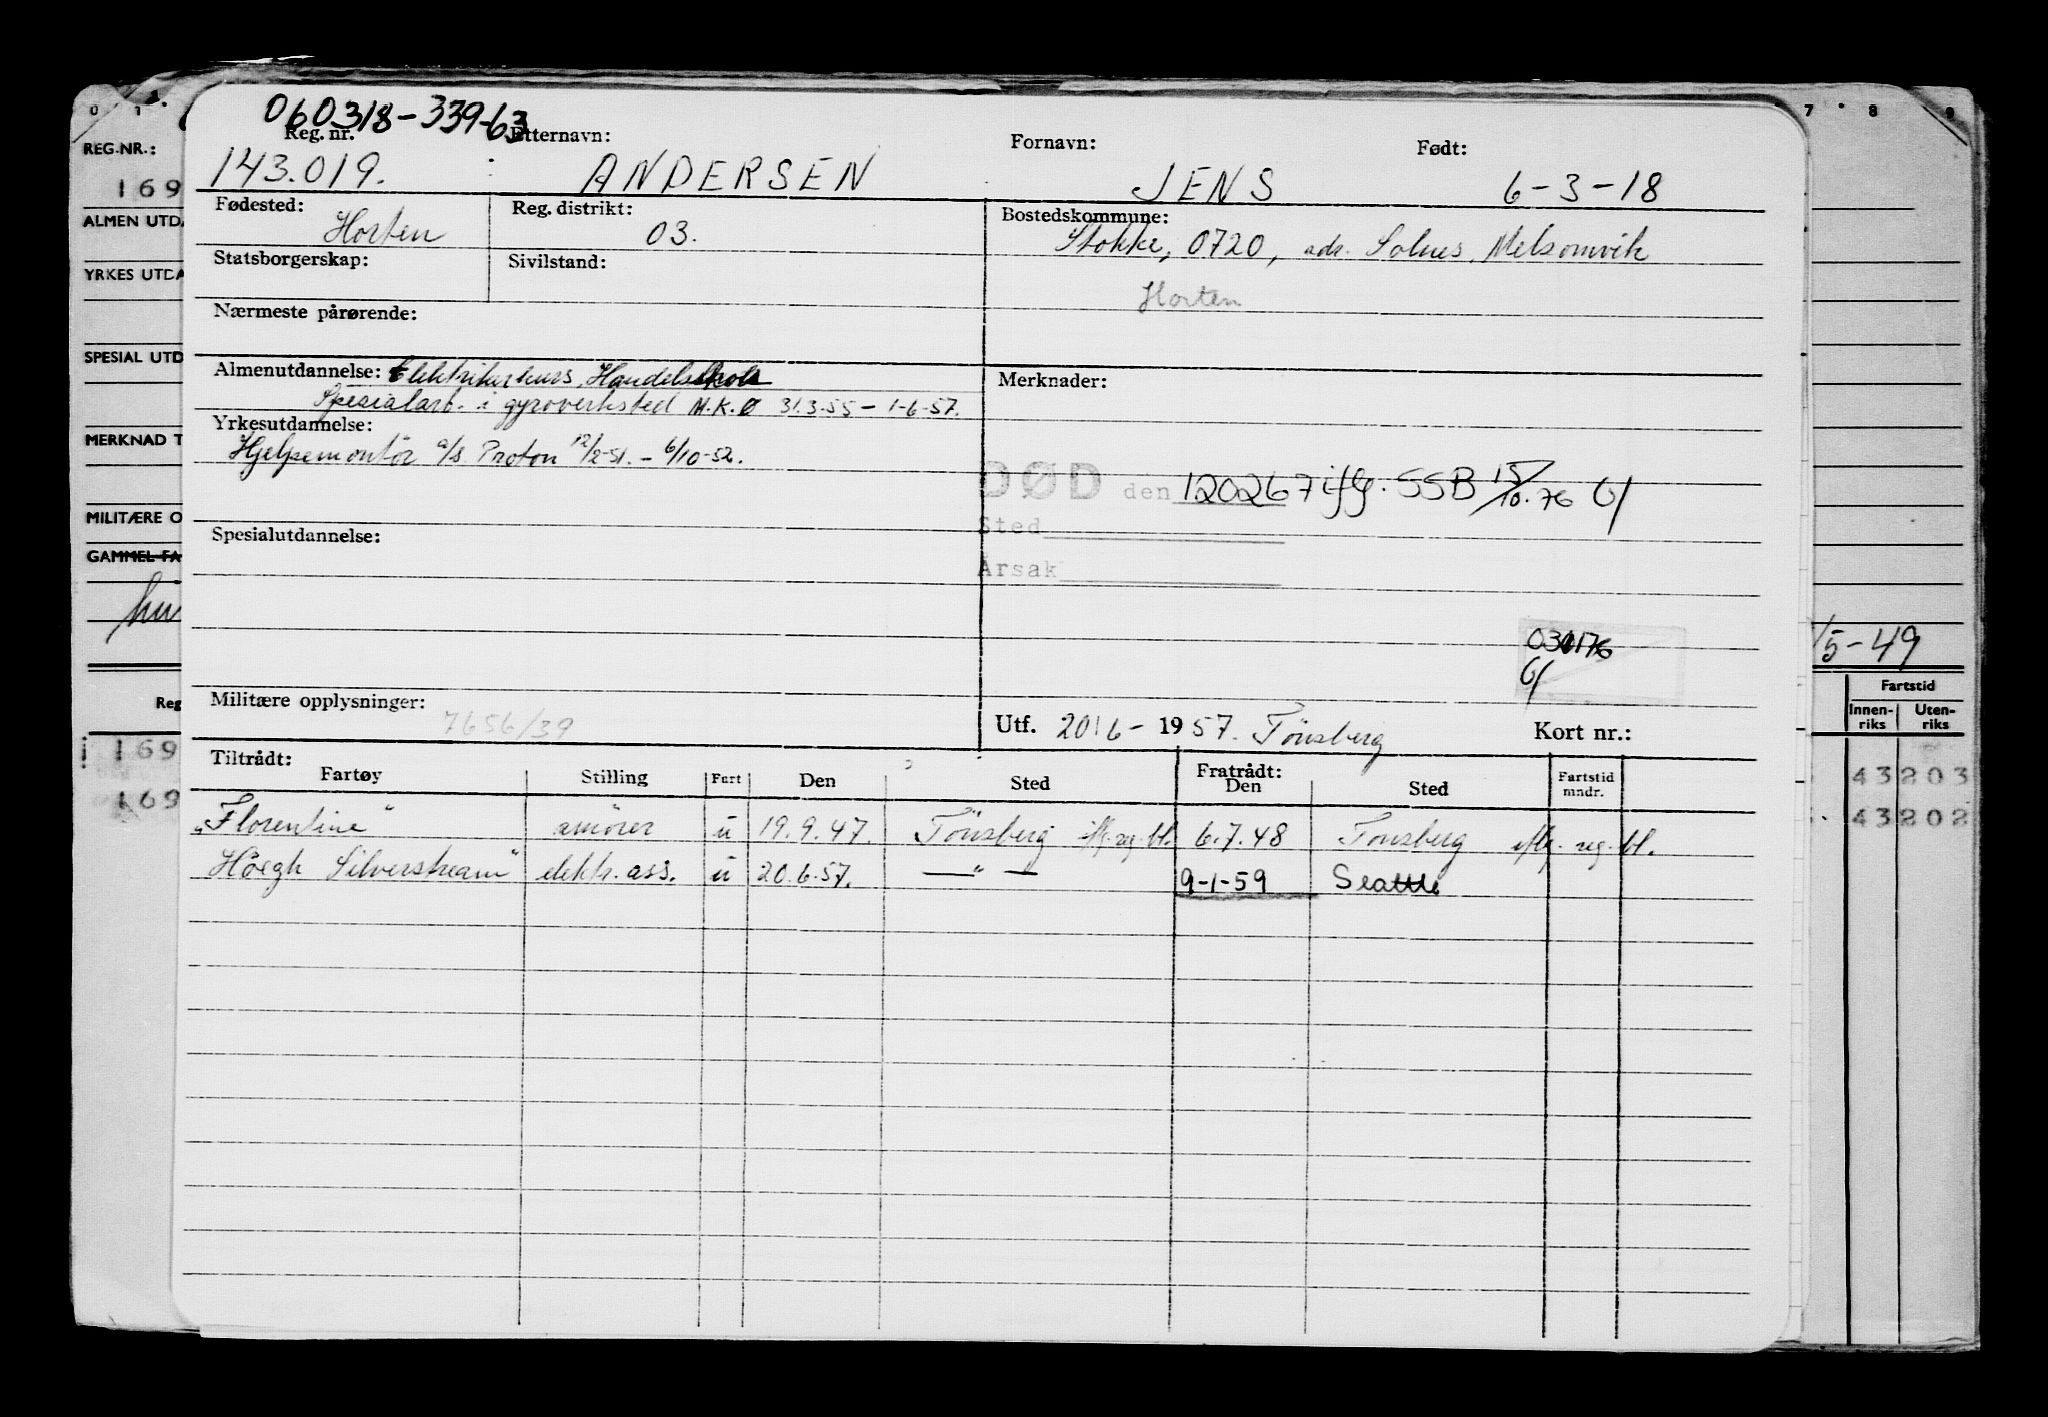 060318-339-63
0 1 7 8 9
REG.NR.: Reg. nr. Etternavn: Fornavn: Født:
169 143.019. ANDERSEN JENS 6-3-18
ALMEN UTDA Fødested: Horten Reg. distrikt: 03. Bostedskommune: Stokke, 0720, adr. Solnes, Melsomvik
YRKES UTDA Statsborgerskap: Sivilstand:
Horten
Nærmeste pårørende:
SPESIAL UTD Almenutdannelse: Elektrikerkurs, Handelsskole Merknader:
Spesialarb. i gyroverksted M.K.Ø 31.3.55 - 1-6-57.
MERKNAD T Yrkesutdannelse:
Hjelpemontör a/s Proton 12/2-51. - 6/10-52.
DØD den 120267 iflg. SSB 15/10.76
MILITÆRE O Sted
Spesialutdannelse:
GAMMEL FA Årsak
030176
/5-49
Militære opplysninger: 7656/39
Utf. 20/6-1957. Tönsberg Kort nr.:
Reg Fartstid
Innen-riks Uten-riks
Tiltrådt: Fratrådt:
Fartøy Stilling Fart Den Sted Den Sted Fartstid mndr.
169 43203
169 43202
"Florentine" smörer u 19.9.47. Tönsberg iflg. reg. bl. 6.7.48 Tönsberg iflg. reg. bl.
Höegh Silverstream" elektr. ass. u 20.6.57. — " — 9-1-59 Seattle